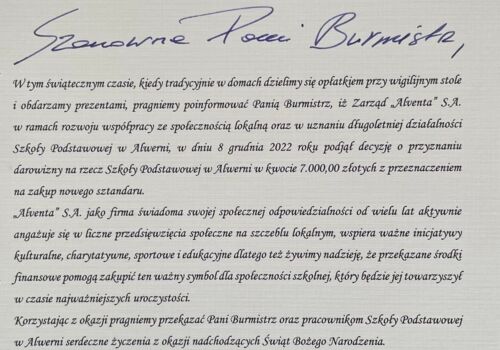 Szanowna Pani Burmistrz,
W tym świątecznym czasie, kiedy tradycyjnie w domach dzielimy się opłatkiem przy wigilijnym stole
i obdarzamy prezentami, pragniemy poinformować Panią Burmistrz, iż Zarząd „Alventa" S.A.
w ramach rozwoju współpracy ze społecznością lokalną oraz w uznaniu długoletniej działalności
Szkoły Podstawowej w Alwerni, w dniu 8 grudnia 2022 roku podjął decyzję o przyznaniu
darowizny na rzecz Szkoły Podstawowej w Alwerni w kwocie 7.000,00 złotych z przeznaczeniem
na zakup nowego sztandaru.
„Alventa" S.A. jako firma świadoma swojej społecznej odpowiedzialności od wielu lat aktywnie
angażuje się w liczne przedsięwzięcia społeczne na szczeblu lokalnym, wspiera ważne inicjatywy
kulturalne, charytatywne, sportowe i edukacyjne dlatego też żywimy nadzieję, że przekazane środki
finansowe pomogą zakupić ten ważny symbol dla społeczności szkolnej, który będzie jej towarzyszył
w czasie najważniejszych uroczystości.
Korzystając z okazji pragniemy przekazać Pani Burmistrz oraz pracownikom Szkoły Podstawowej
w Alwerni serdeczne życzenia z okazji nadchodzących Świąt Bożego Narodzenia.